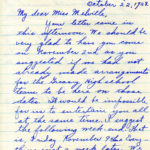 October 22, 1928.
My dear Miss Melville,
Your letter came in
this afternoon. We should be
very glad to have you come
in November and as you
suggested if we had not
already made arrangements
for the High School
teams to be here on those
dates. It would be impossible
for us to entertain you all
at the same time. I suggest
the following week end, that
is, Friday, November